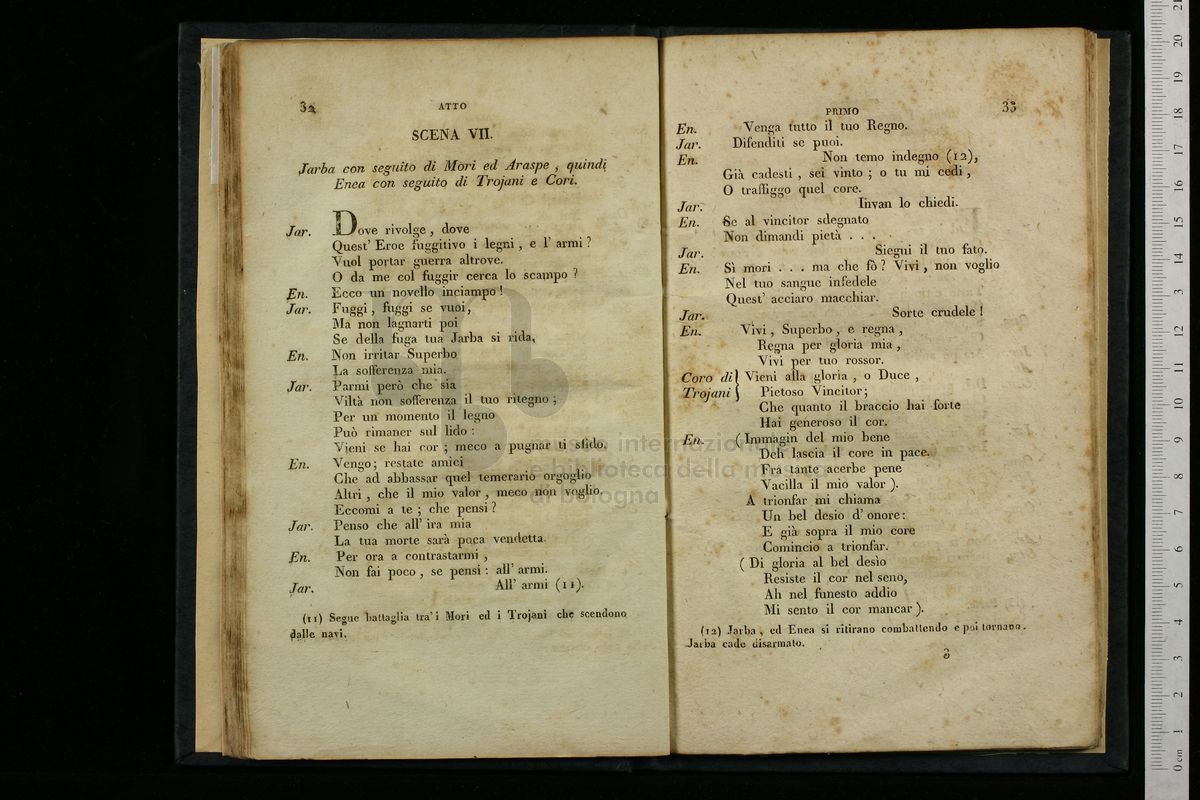 32
ATTO
SCENA VII.
Jarba con seguito di Mori ed Araspe , quindi
Enea con seguito di Trojani e Cori.
Jar. Dove rivolge , dove
Quest' Eroe fuggitivo i legni , e l' armi ?
Vuol portar guerra altrove.
O da me col fuggir cerca lo scampo ?
En. Ecco un novello inciampo !
Jar. Fuggi , fuggi se vuoi,
Ma non lagnarti poi
Se della fuga tua Jarba si rida,
En. Non irritar Superbo
La sofferenza mia.
Jar. Parmi però che sia
Viltà non sofferenza il tuo ritegno ;
Per un momento il legno
Può rimaner sul lido :
Vieni se hai cor ; meco a pugnar ti sfido.
En. Vengo; restate amici
Che ad abbassar quel temerario orgoglio
Altri , che il mio valor , meco non voglio.
Eccomi a te ; che pensi ?
Jar. Penso che all' ira mia
La tua morte sarà poca vendetta.
En. Per ora a contrastarmi ,
Non fai poco , se pensi : all' armi.
Jar. All' armi (11).
(11) Segue battaglia tra' i Mori ed i Trojani che scendono
dalle navi.
PRIMO
33
En. Venga tutto il tuo Regno.
Jar. Difenditi se puoi.
En. Non temo indegno (12),
Già cadesti , sei vinto ; o tu mi cedi ,
O traffiggo quel core.
Jar. Invan lo chiedi.
En. Se al vincitor sdegnato
Non dimandi pietà . . .
Jar. Siegui il tuo fato.
En. Sì mori . . . ma che fò ? Vivi , non voglio
Nel tuo sangue infedele
Quest' acciaro macchiar.
Jar. Sorte crudele !
En. Vivi , Superbo , e regna ,
Regna per gloria mia ,
Vivi per tuo rossor.
Coro di } Vieni alla gloria , o Duce ,
Trojani } Pietoso Vincitor;
Che quanto il braccio hai forte
Hai generoso il cor.
En. (Immagin del mio bene
Deh lascia il core in pace.
Fra tante acerbe pene
Vacilla il mio valor ).
A trionfar mi chiama
Un bel desio d' onore:
E già sopra il mio core
Comincio a trionfar.
( Di gloria al bel desìo
Resiste il cor nel seno,
Ah nel funesto addio
Mi sento il cor mancar ).
(12) Jarba , ed Enea si ritirano combattendo e poi tornano.
Jarba cade disarmato.
museo internazionale
e biblioteca della musica
di bologna
0 cm 1 2 3 4 5 6 7 8 9 10 11 12 13 14 15 16 17 18 19 20 21